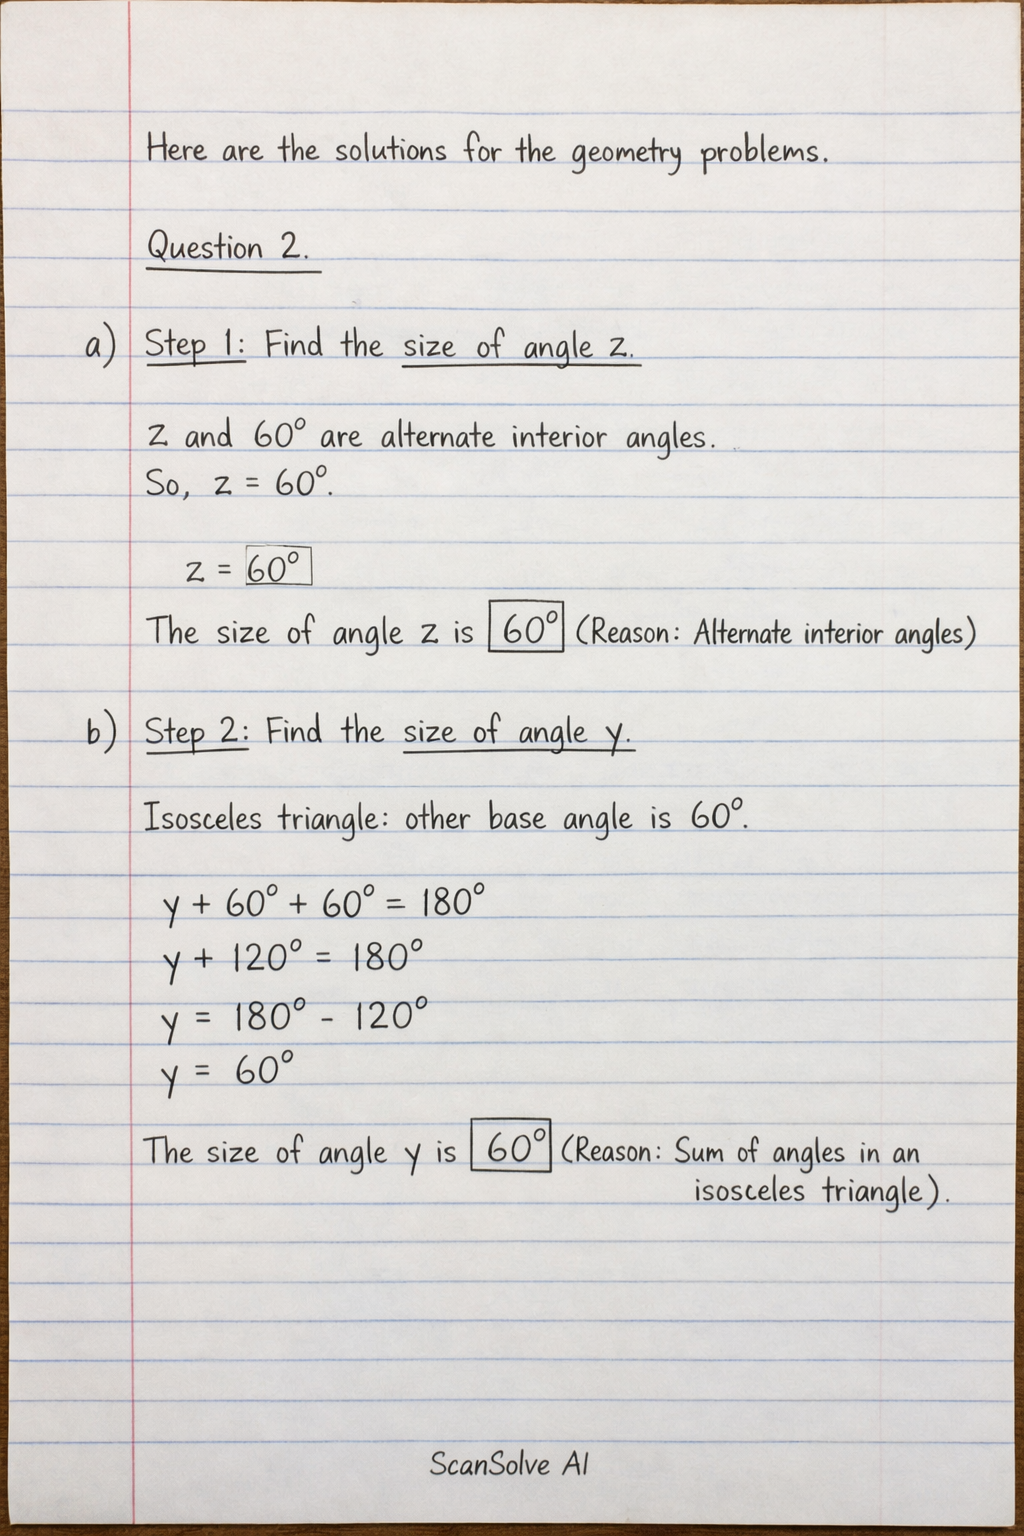 Here are the solutions for the geometry problems.
Question 2.
a) Step 1: Find the size of angle z.
z and 60° are alternate interior angles.
So, z = 60°.
z = 60°
The size of angle z is 60° (Reason: Alternate interior angles)
b) Step 2: Find the size of angle y.
Isosceles triangle: other base angle is 60°.
y + 60° + 60° = 180°
y + 120° = 180°
y = 180° - 120°
y = 60°
The size of angle y is 60° (Reason: Sum of angles in an
isosceles triangle).
ScanSolve AI